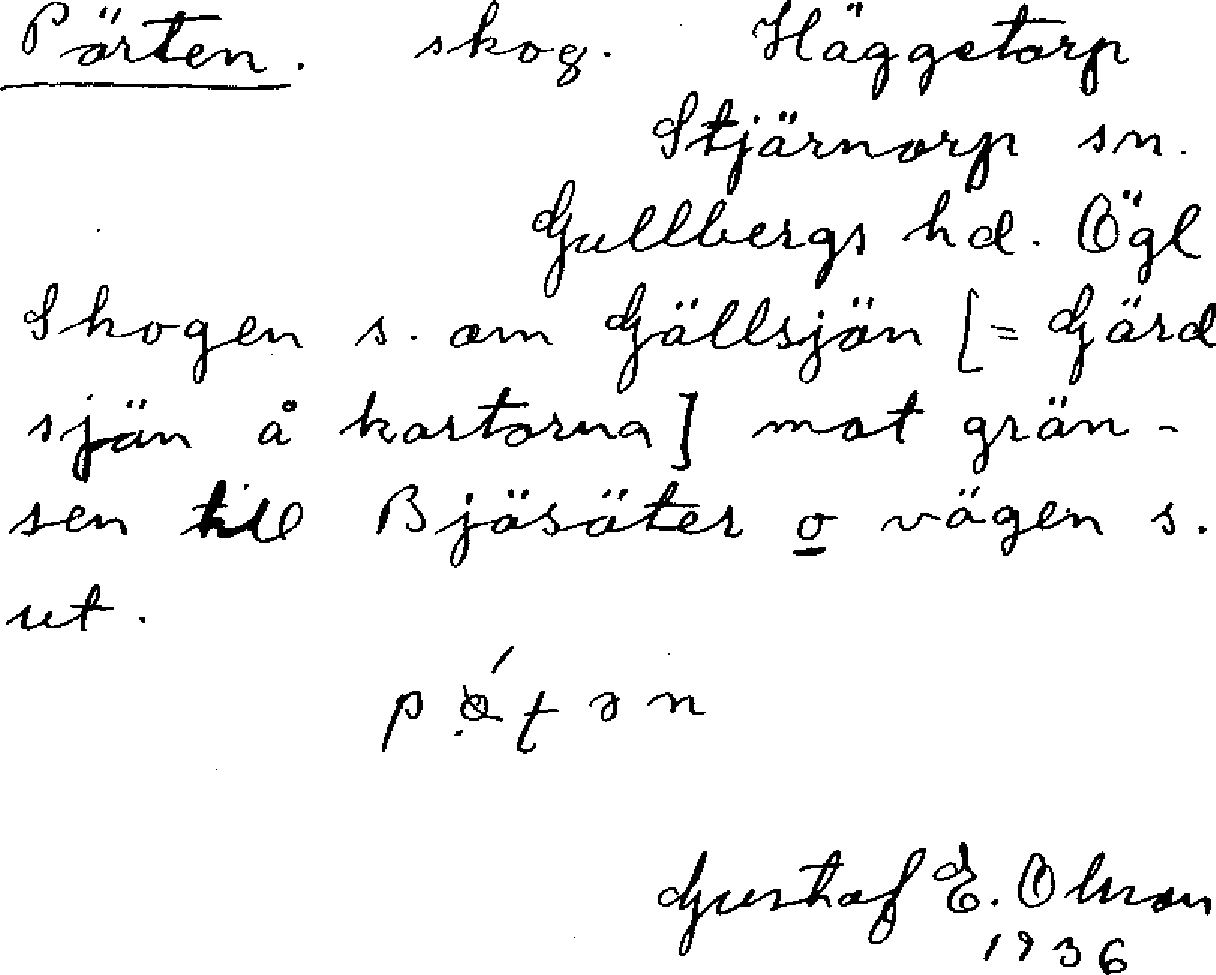 Pörten. skog. Häggetorp
Stjärnorp sn.
Gullbergs hd. Ögl
Skogen s. om Gällsjön [= Gärd
sjön å kartorna] mot grän-
sen till Bjäsäter o vägen s.
ut.
Gustaf E. Olsson
1936